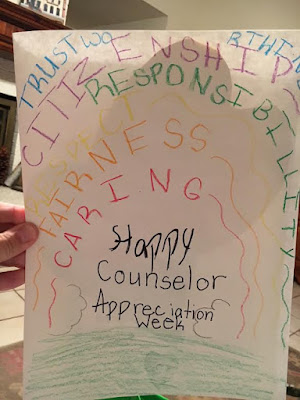 TRUSTWORTHINESS
CITIZENSHIP
RESPONSIBILITY
RESPECT
FAIRNESS
CARING
Happy
Counselor
Appreciation
Week